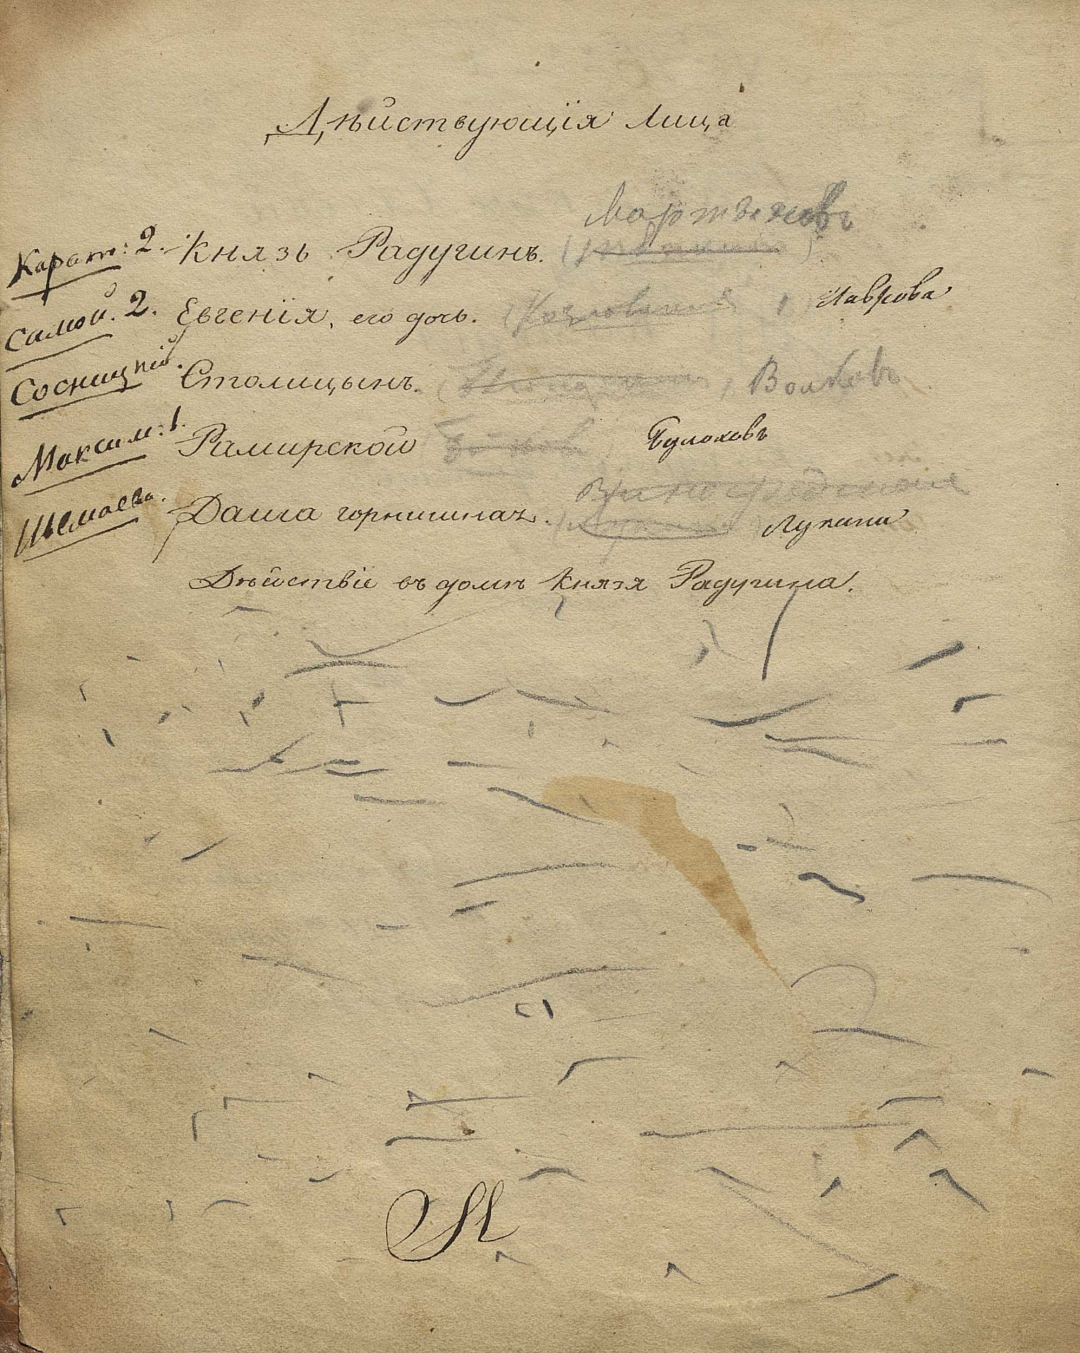 Дѣйствующія Лица
Мартыновъ
Карат: 2. Князь Радугинъ.
Самой. 2. Евгенія, его дочь. Лаврова
Сосницкій. Столицынъ. Волковъ
Максим: 1. Рамирской Булаховъ
Шемаева. Даша горнишная. Лукина
Дѣйствіе въ домѣ Князя Радугина.